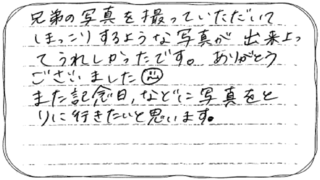 兄弟の写真を撮っていただいて
ほっこりするような写真が出来上っ
てうれしかったです。ありがとう
ございました
また記念日,などに写真をと
りに行きたいと思います。